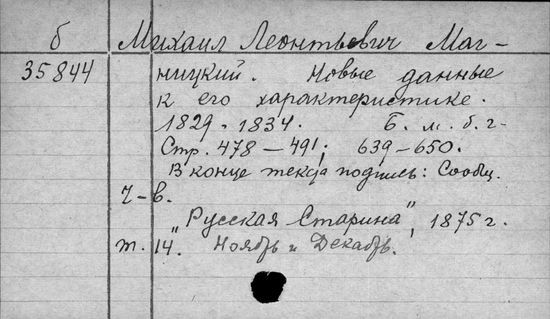 б Михаил Леонтьевич Маг-
35844 ницкий. Новые данные
к его характеристике.
1829-1834. Б. м. б. г.
Стр. 478-491; 639-650.
В конце текста подпись: Сообщ.
Ч-в.
"Русская Старина", 1875 г.
т. 14. Ноябрь и Декабрь.